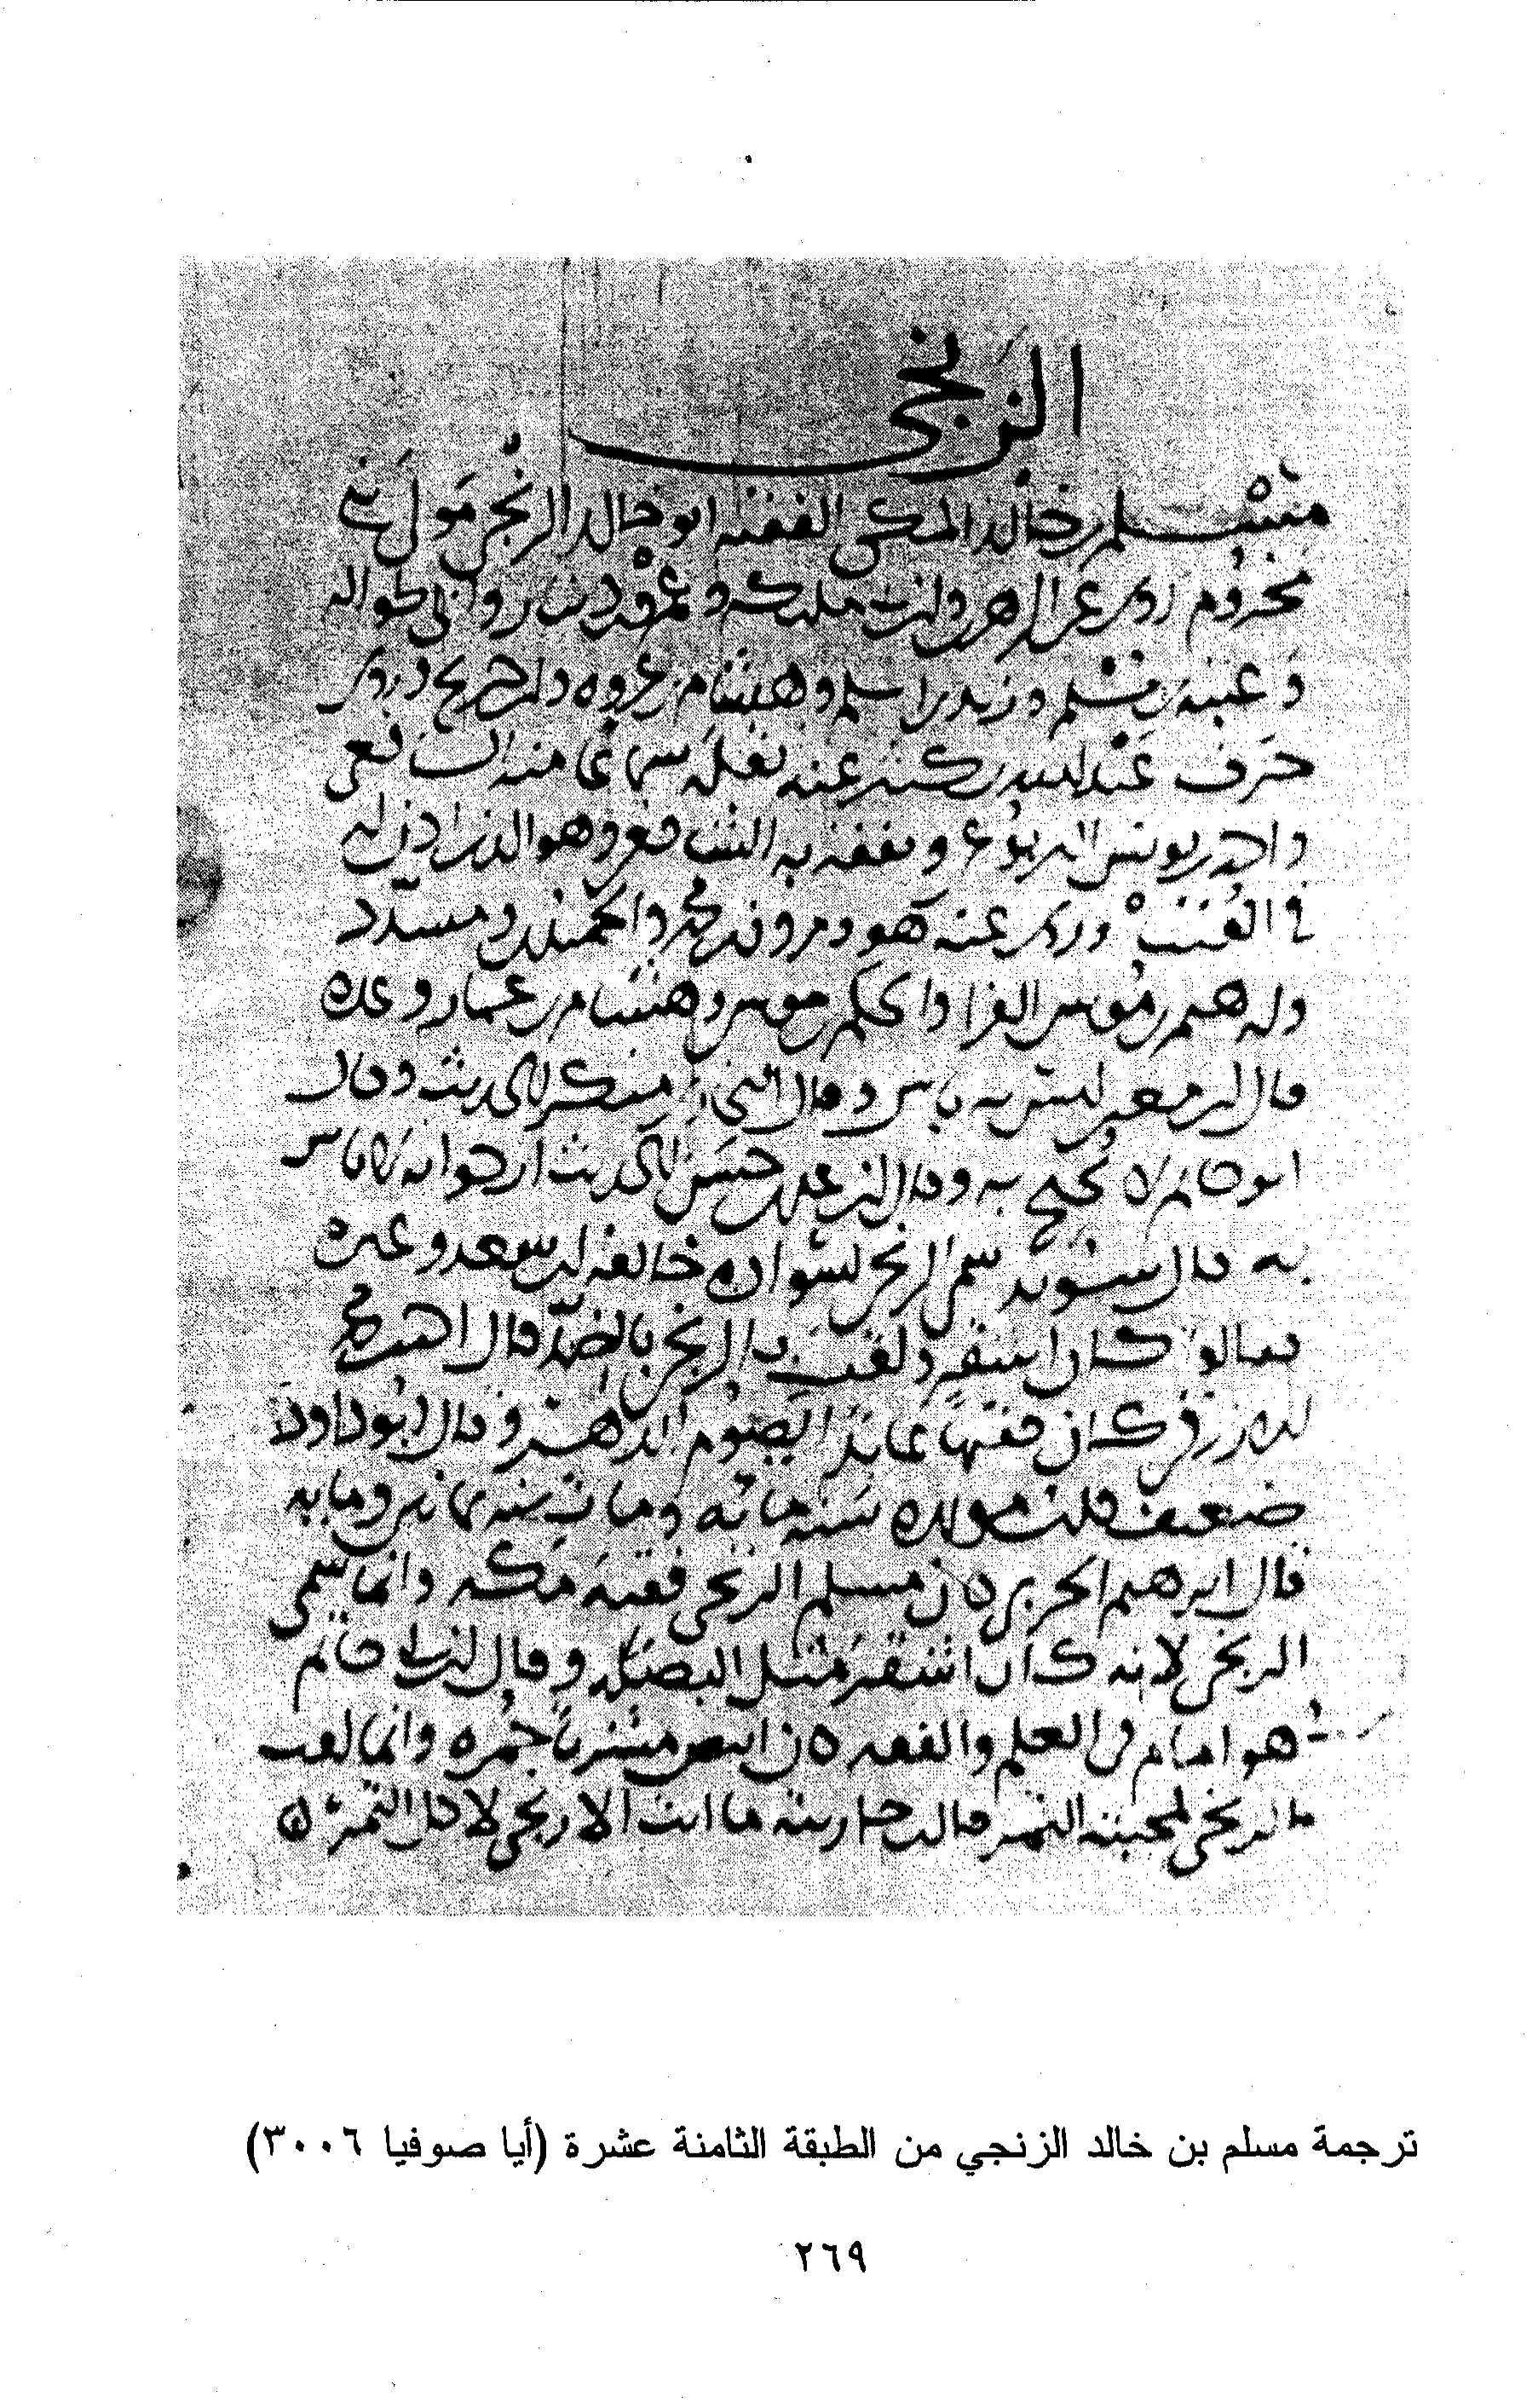 الزنجي
مسلم بن خالد المكي الفقيه ابو خالد الزنجي مولى بني
مخزوم روى عن الزهري وابن ابي مليكة وعمرو بن دينار وابي طواله
وعتبة بن مسلم وزيد بن اسلم وهشام بن عروه وابن جريج وروى
حرف عبد الله بن كثير عنه نقله سماعا منه الشافعي
واحمد بن يونس اليربوعي وتفقه به الشافعي وهو الذي اذن له
في الفتيا وروى عنه هو ومروان بن محمد والحميدي ومسدد
وابرهيم بن موسى الفرا والحكم بن موسى وهشام بن عمار وعده
قال ابن معين ليس به باس وقال البخاري منكر الحديث وقال
ابو حاتم لا يحتج به وقال ابن عدي حسن الحديث ارجوا انه لا باس
به قال سويد سمي الزنجي لسواده خالفه ابن سعد وغيره
فقالوا كان اشقر ولقب بالزنجي بالضد قال احمد بن محمد
الازرقي كان فقيها عابدا يصوم الدهر وقال ابو داود
ضعيف قلت مولده سنة مائه ومات سنة ثمانين ومايه
قال ابرهيم الحربي كان مسلم الزنجي فقيه مكه وانما سمي
الزنجي لانه كان اشقر مثل البصله وقال ابن ابي حاتم
هو امام في العلم والفقه كان ابيض مشربا حمره وانما لقب
بالزنجي لمحبته التمر قالت جاريته ما انت الا زنجي لاكل التمر
ترجمة مسلم بن خالد الزنجي من الطبقة الثامنة عشرة (أيا صوفيا ٣٠٠٦)
٢٦٩